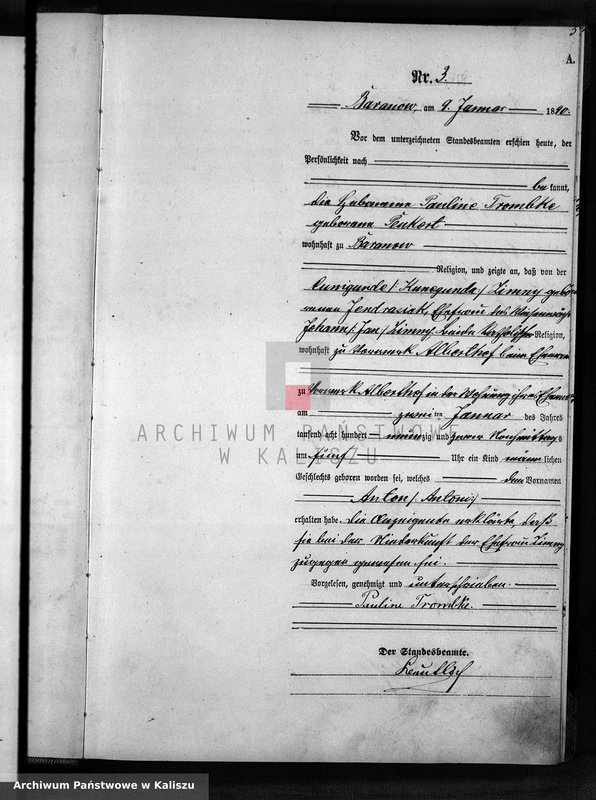 A.
Nr. 3.
Baranow, am 9. Januar 1890.
Vor dem unterzeichneten Standesbeamten erschien heute, der
Persönlichkeit nach
bekannt,
die Hebamme Pauline Trombke
geborene Penkert
wohnhaft zu Baranow
Religion, und zeigte an, daß von der
Cunigunde /: Kunegunda :/ Zimny gebo
renen Jendrasiak, Ehefrau des
Johann /: Jan :/ Zimny, beide katholischer Religion,
wohnhaft zu Vorwerk Alberthof beim Ehemann
zu Vorwerk Alberthof in der Wohnung ihres Ehemannes
am zweiten Januar des Jahres
tausend acht hundert neunzig und zwar Nachmittags
um fünf Uhr ein Kind männlichen
Geschlechts geboren worden sei, welches den Vornamen
Anton /: Antoni :/
erhalten habe. Die Anzeigende erklärte, daß
sie bei der Niederkunft der Ehefrau Zimny
zugegen gewesen sei.
Vorgelesen, genehmigt und unterschrieben.
Pauline Trombke.
Der Standesbeamte.
ARCHIWUM PAŃSTWOWE
W KALISZU
Archiwum Państwowe w Kaliszu